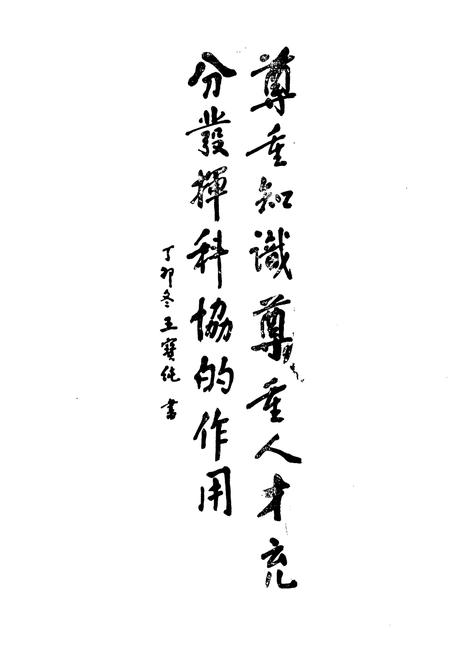 尊重知識尊重人才充
分發揮科協的作用
丁卯冬王寶純書